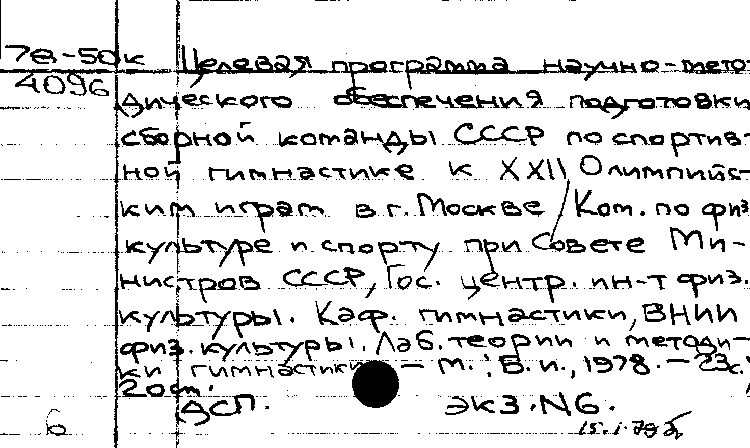 78-50к Целевая программа научно-мето-
4096 дического обеспечения подготовки
сборной команды СССР по спортив-
ной гимнастике к XXII Олимпийс-
ким играм в г. Москве / Ком. по физ.
культуре и спорту при Совете Ми-
нистров СССР, Гос. центр. ин-т физ.
культуры. Каф. гимнастики, ВНИИ
физ. культуры. Лаб. теории и методи-
ки гимнастики — М.: Б.и., 1978. — 23с.;
20см.
ДСП. экз. N6.
6